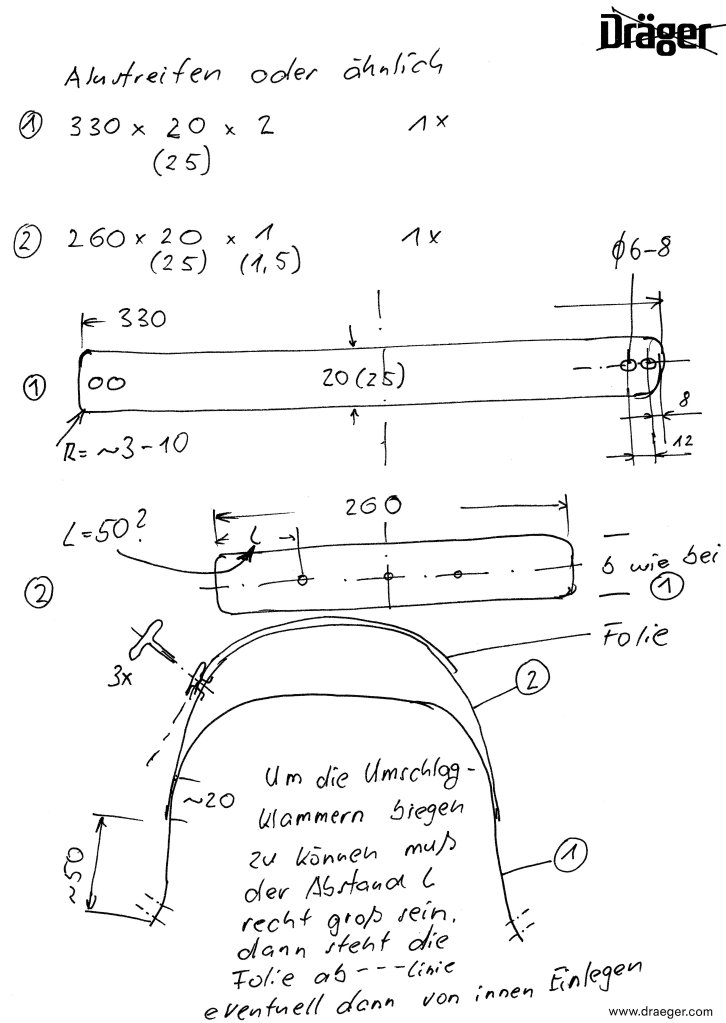 Dräger
Alustreifen oder ähnlich
① 330 x 20 x 2 1x
(25)
② 260 x 20 x 1 1x
(25) (1,5)
ϕ6-8
330
① 20 (25)
8
R= ~3-10
12
260
L=50?
L
b wie bei
② ①
Folie
3x
②
Um die Umschlag-
~20
klammern biegen
zu können muß
①
~50
der Abstand L
recht groß sein,
dann steht die
Folie ab ---linie
eventuell dann von innen Einlegen
www.draeger.com